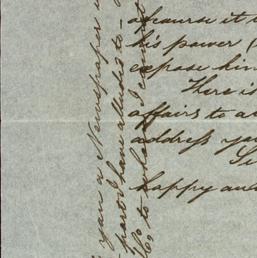 of course it i
his power (
expose him
There is
affairs to a
address you
Si
happy and
you a Newspaper
part I have alluded to -
to what I can